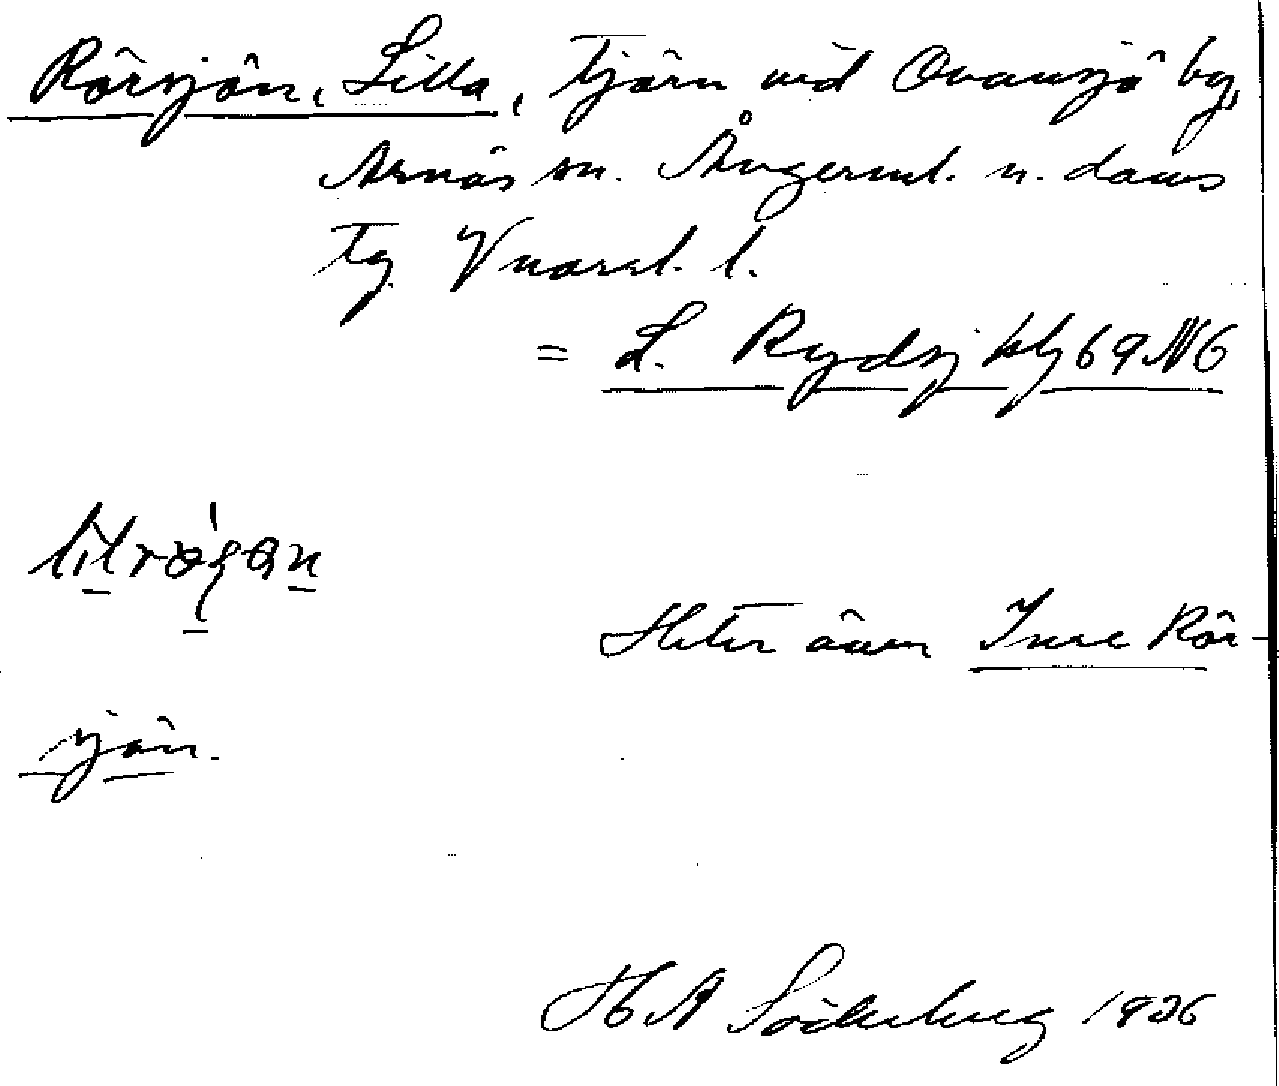 Rörsjön, Lilla, Tjärn vid Ovansjö by,
Arnäs sn. Ångerml. n. dans
Tg. V norrl. l.
= L. Rydsj kbl 69 NV6
Heter även Inre Rör-
sjön.
H A Söderberg 1926